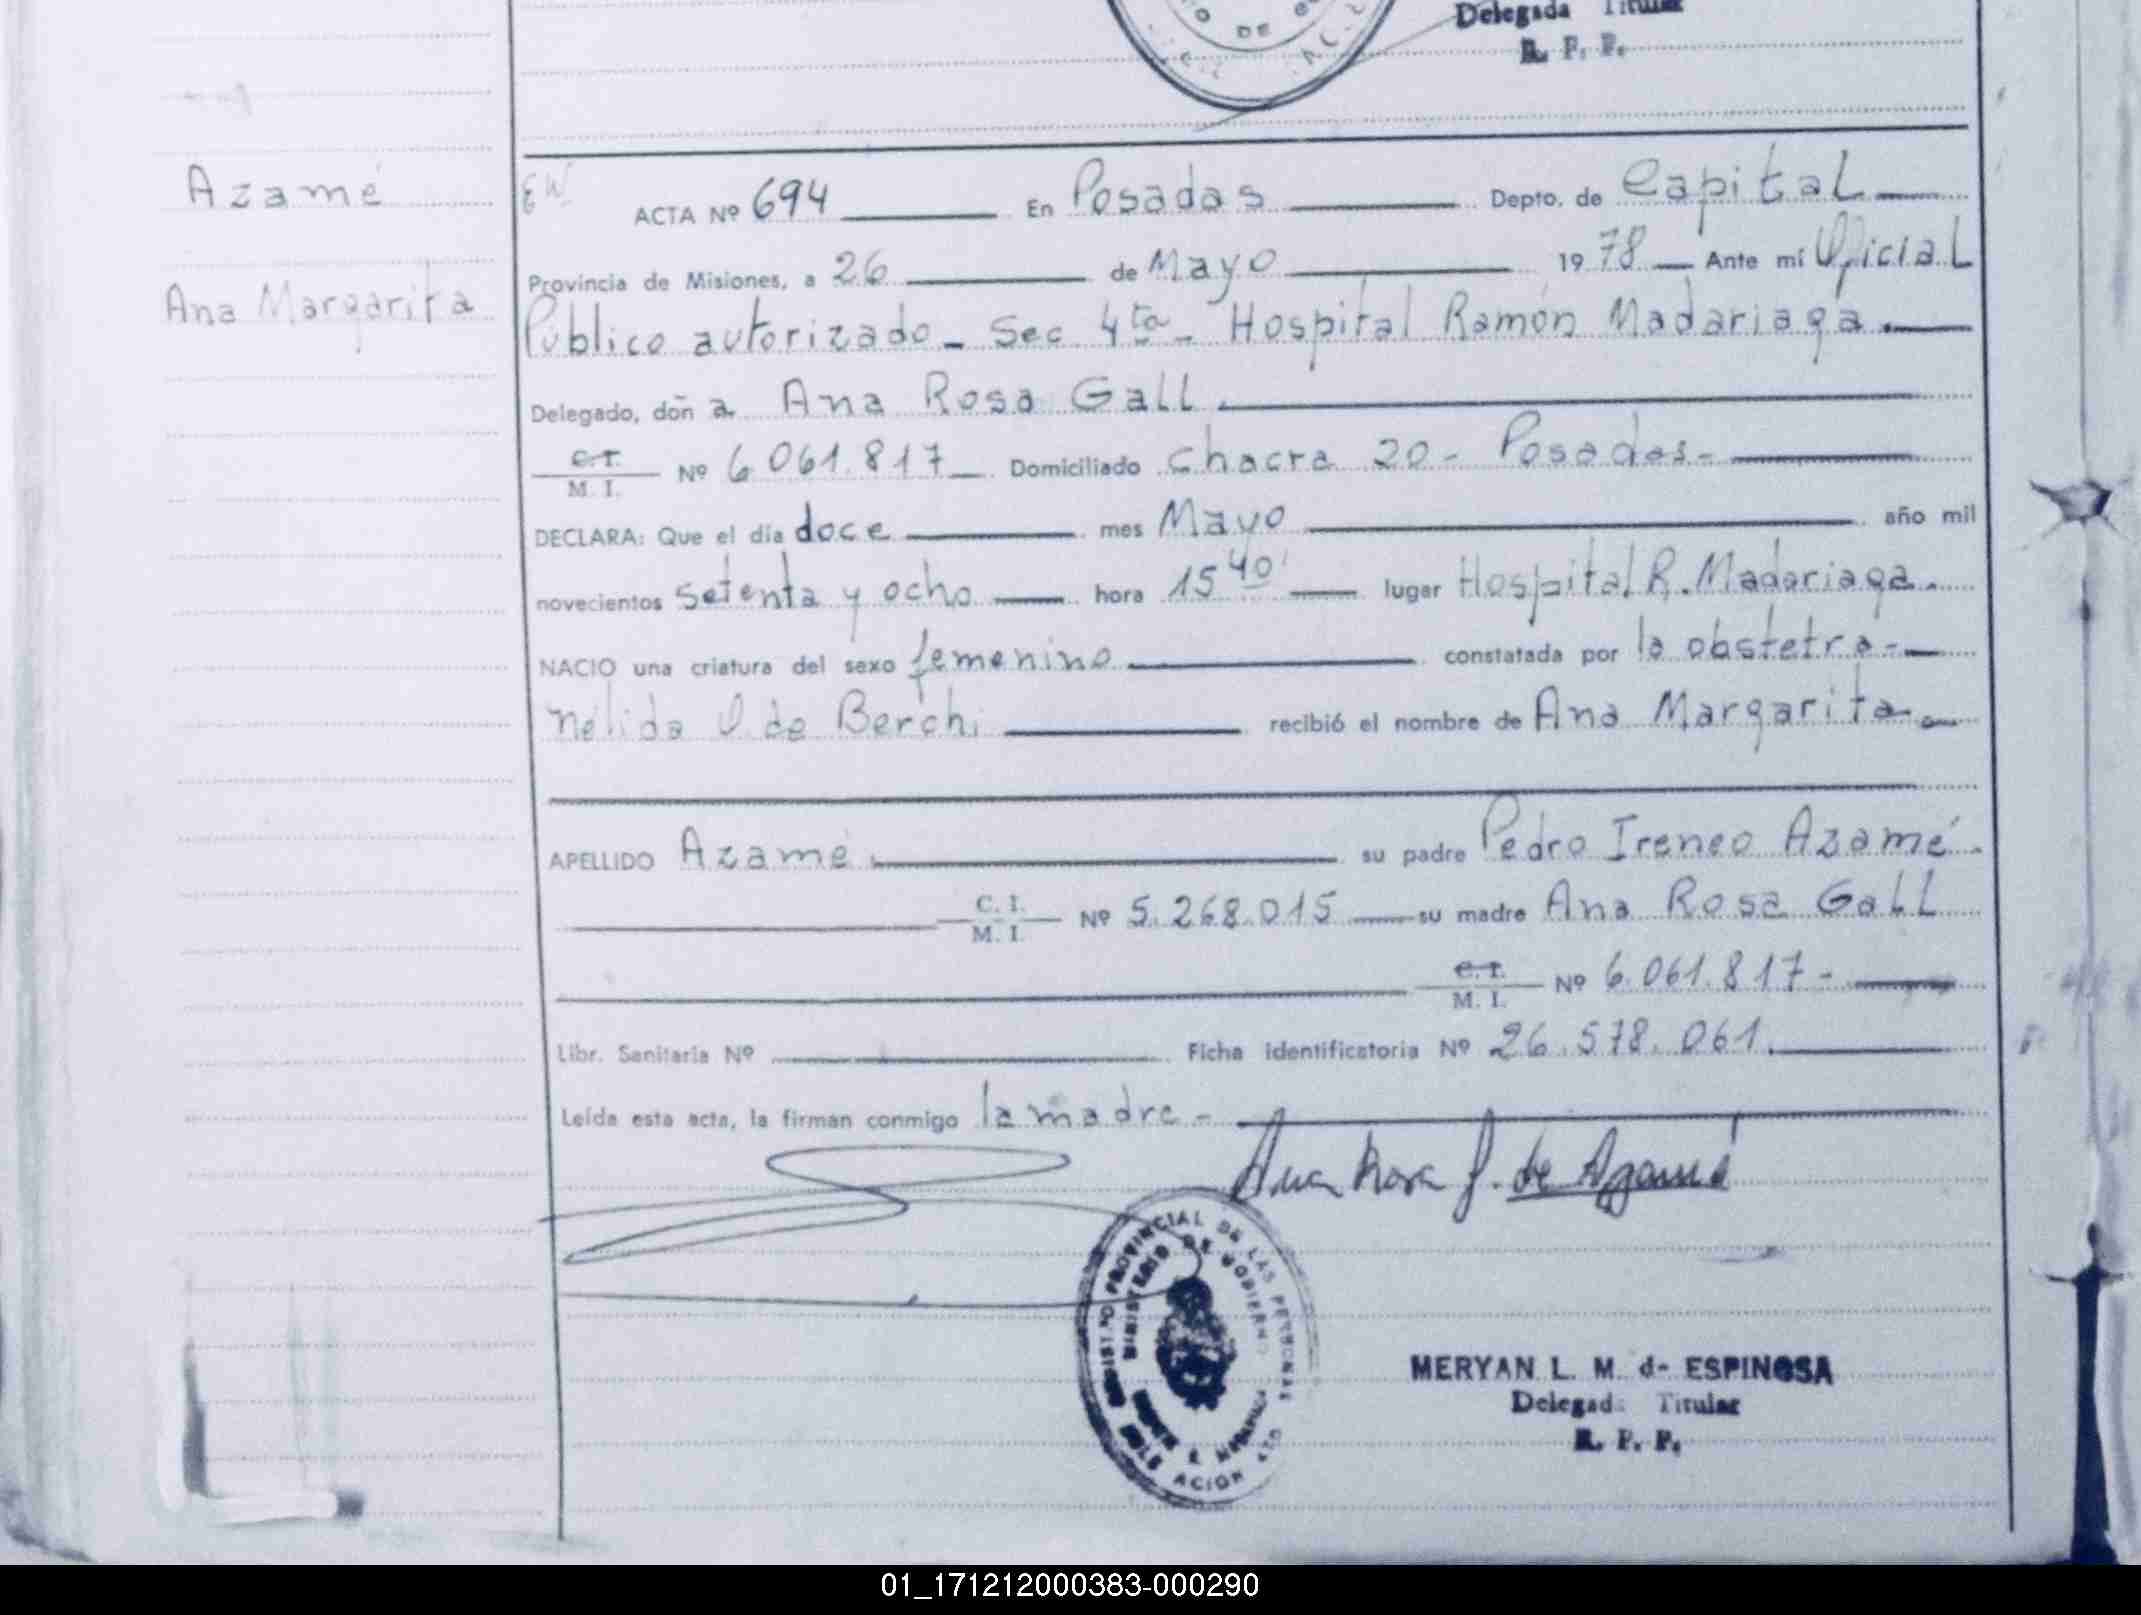 Delegada Titular
R. P. P.
Azamé
Ana Margarita
ACTA Nº 694 En Posadas Depto. de Capital
Provincia de Misiones, a 26 de Mayo 1978 Ante mí Oficial
Público autorizado - Sec 4ta - Hospital Ramón Madariaga.
Delegado, doña Ana Rosa Gall
C.I. M. I. Nº 6.061.817 Domiciliado Chacra 20 - Posadas -
DECLARA: Que el día doce mes Mayo año mil
novecientos setenta y ocho hora 15 40' lugar Hospital R. Madariaga.
NACIO una criatura del sexo femenino constatada por la obstetra -
Nélida O. de Berchi recibió el nombre de Ana Margarita -
APELLIDO Azamé su padre Pedro Ireneo Azamé.
C. I. M. I. Nº 5.268.015 su madre Ana Rosa Gall
C.I. M. I. Nº 6.061.817 -
Libr. Sanitaria Nº Ficha identificatoria Nº 26.578.061.
Leída esta acta, la firman conmigo la madre -
Ana Rosa G. de Azamé
PROVINCIAL DE LAS PERSONAS
MINISTERIO DE GOBIERNO
MERYAN L. M. d- ESPINOSA
Delegad Titular
R. P. P.
01_171212000383-000290